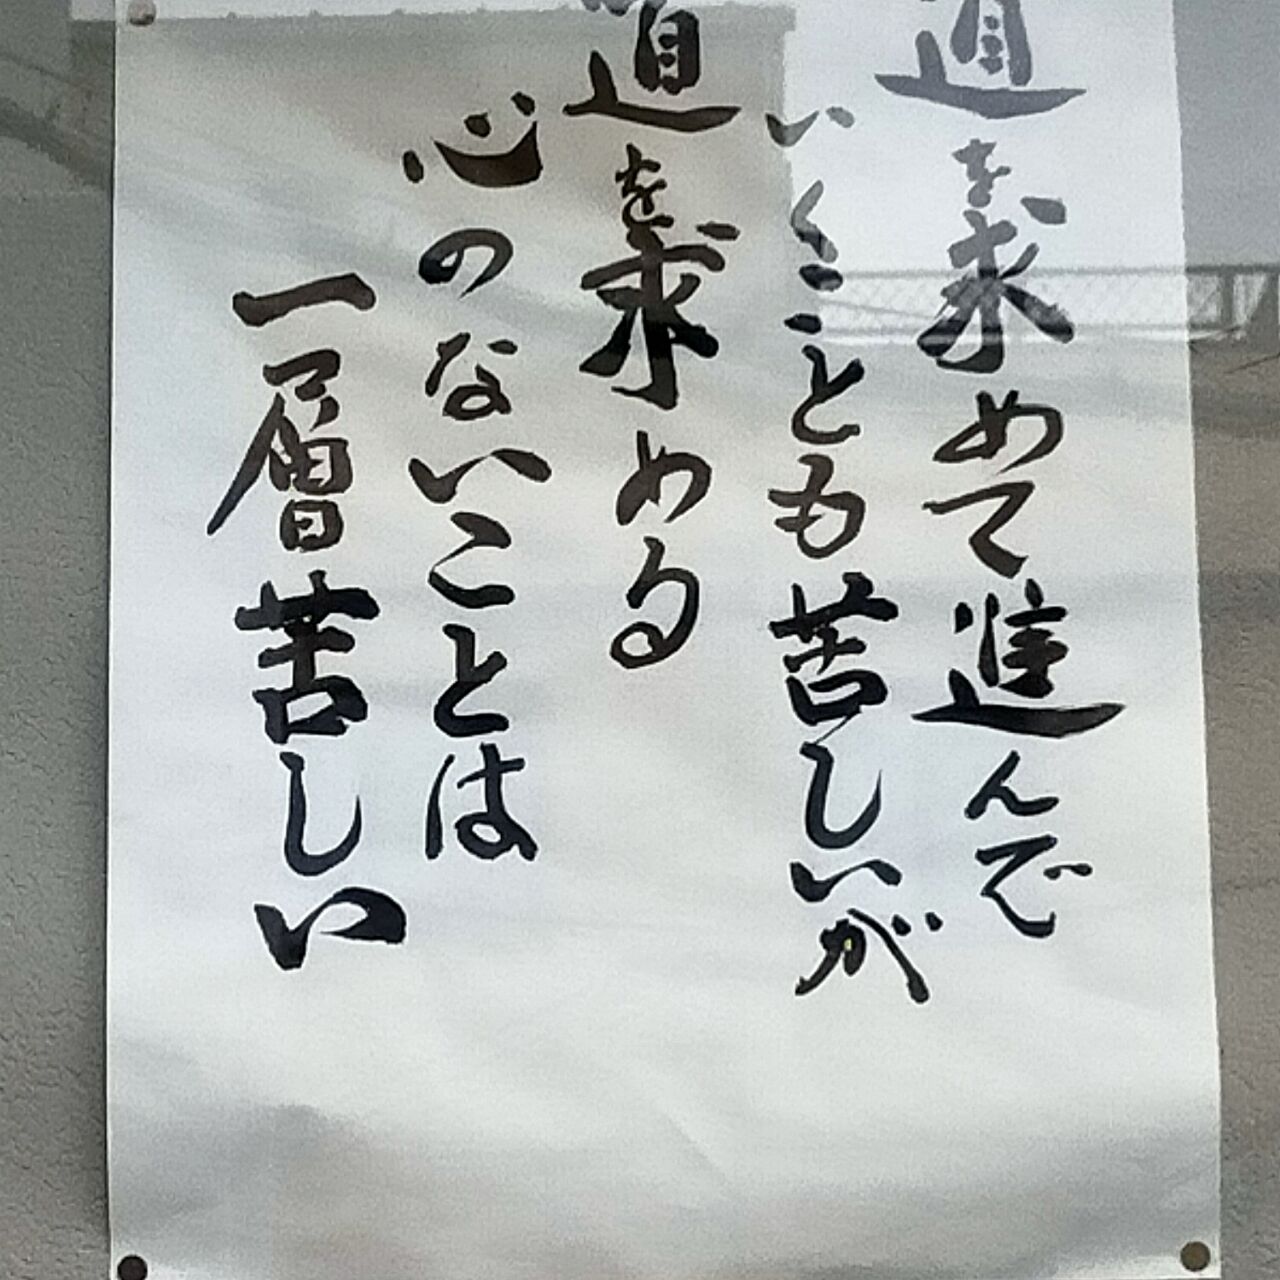 道を求めて進んで
いくことも苦しいが
道を求める
心のないことは
一層苦しい